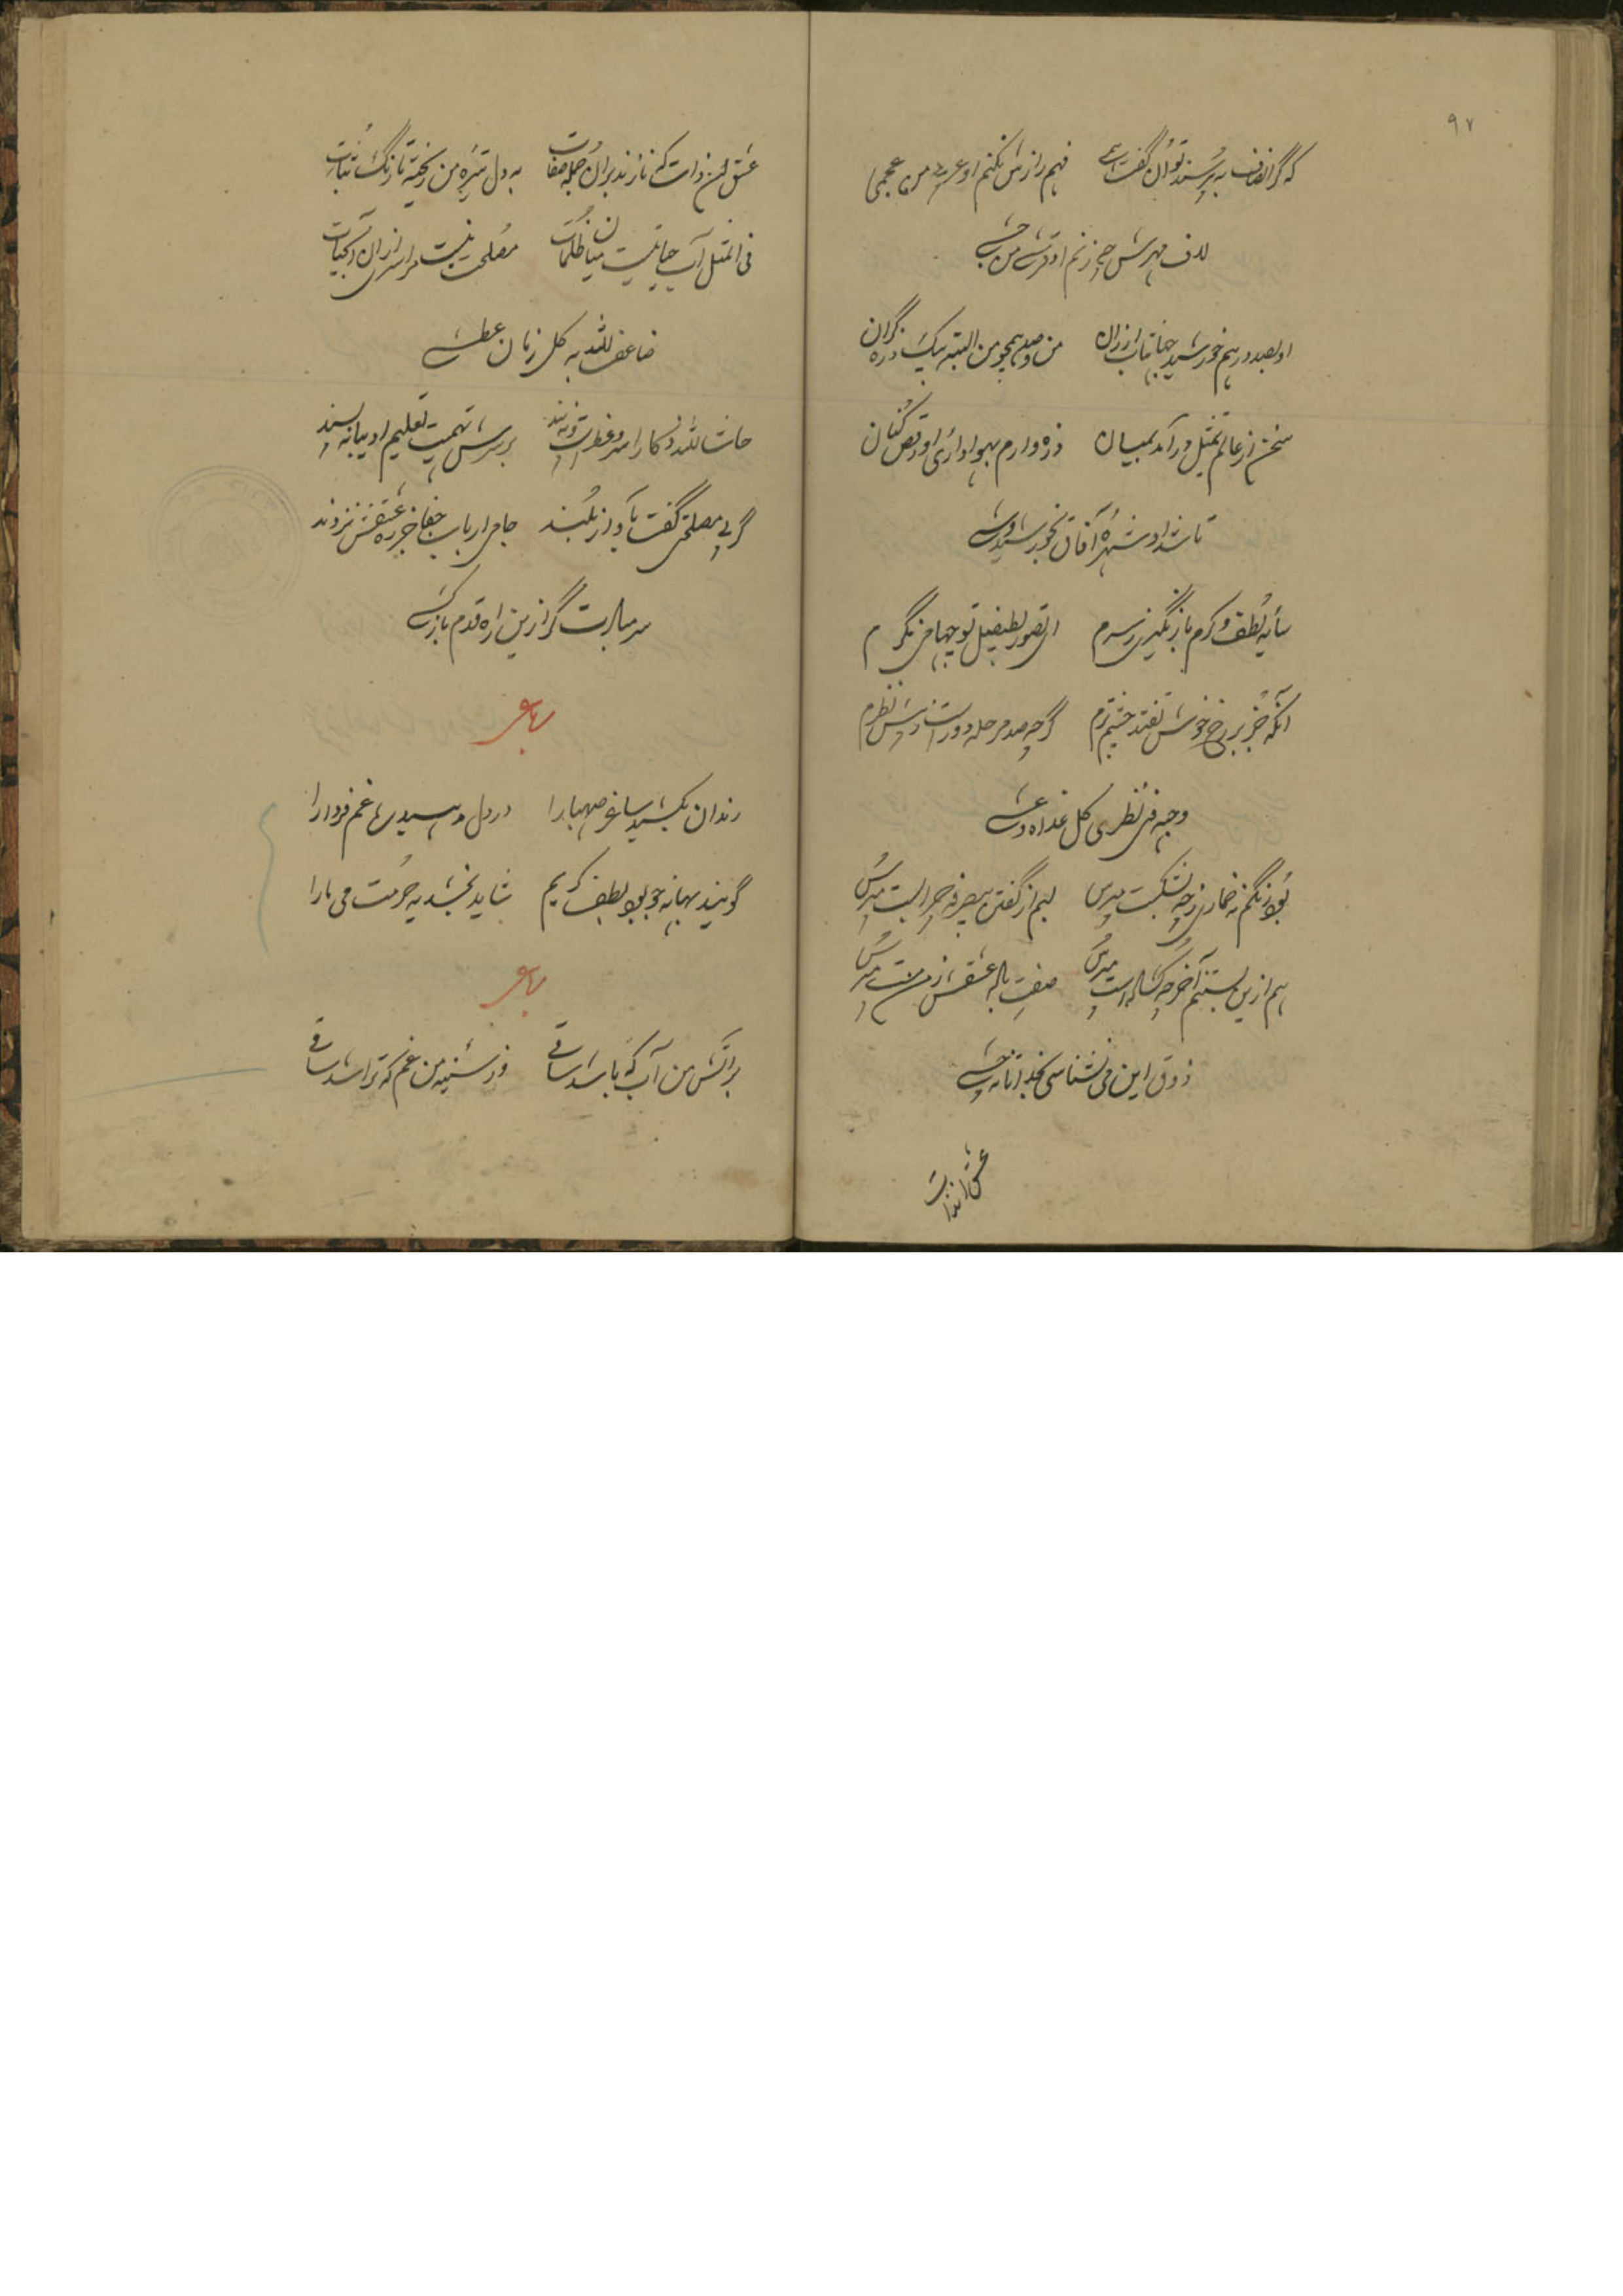 ۹۷
که گر انصاف به پرسند توان گفت اسمی فهم رازش نکنم او عربی من عجمی
لاف مهرش چه زنم او قرشی من حبشی
او بصد در هم خورشید جهانتاب ارزان من و صد همچو من البته بیک ذره گران
سخن از عالم تمثیل در آمد بمیان ذره وارم بهواداری او رقص کنان
تا شد او شهره آفاق بخورشید وشی
سایه لطف و کرم باز نگیری ز سرم ای تصور بطفیل تو جهامی نگرم
آنکه جز بر رخ خوبش نفتد چشم ترم گرچه صد مرحله دور است ز پیش نظرم
وجهه فی نظری کل غداه و عشی
بوی رنگم نه خمار زچه بشکست مپرس لبم از گفتن بیصرفه چرا بست مپرس
هم ازین بستنم آخر چه گشاد است مپرس صفت باده عشقش ز من مست مپرس
ذوق این می نشناسی بخدا تا نچشی
عشق آن ذات
عشق آن ذات که نازند بر آن جمله صفات به دل تیره من ریخته تا رنگ ثبات
فی المثل آب حیاتیست میان ظلمات مصلحت نیست مرا سیری از آن آب حیات
ضاعف الله به کل زمان عطشی
حاش لله ز کار اسد و فطرت بر سرش تهمت تعلیم ادیبانه پسند
گر پی مصلحتی گفت بآواز بلند جامی ارباب جفا جز ره عشقش نروند
سر مبادت گر ازین راه قدم باز کشی
رباعی
رندان بکشید ساغر صهبا را در دل مدهید راه غم فردا را
گویند بهانه جو بود لطف کریم شاید بخشد به حرمت می ما را
رباعی
بر آتش من آب که باشد ساقی وز سینه من غم که تراشد ساقی